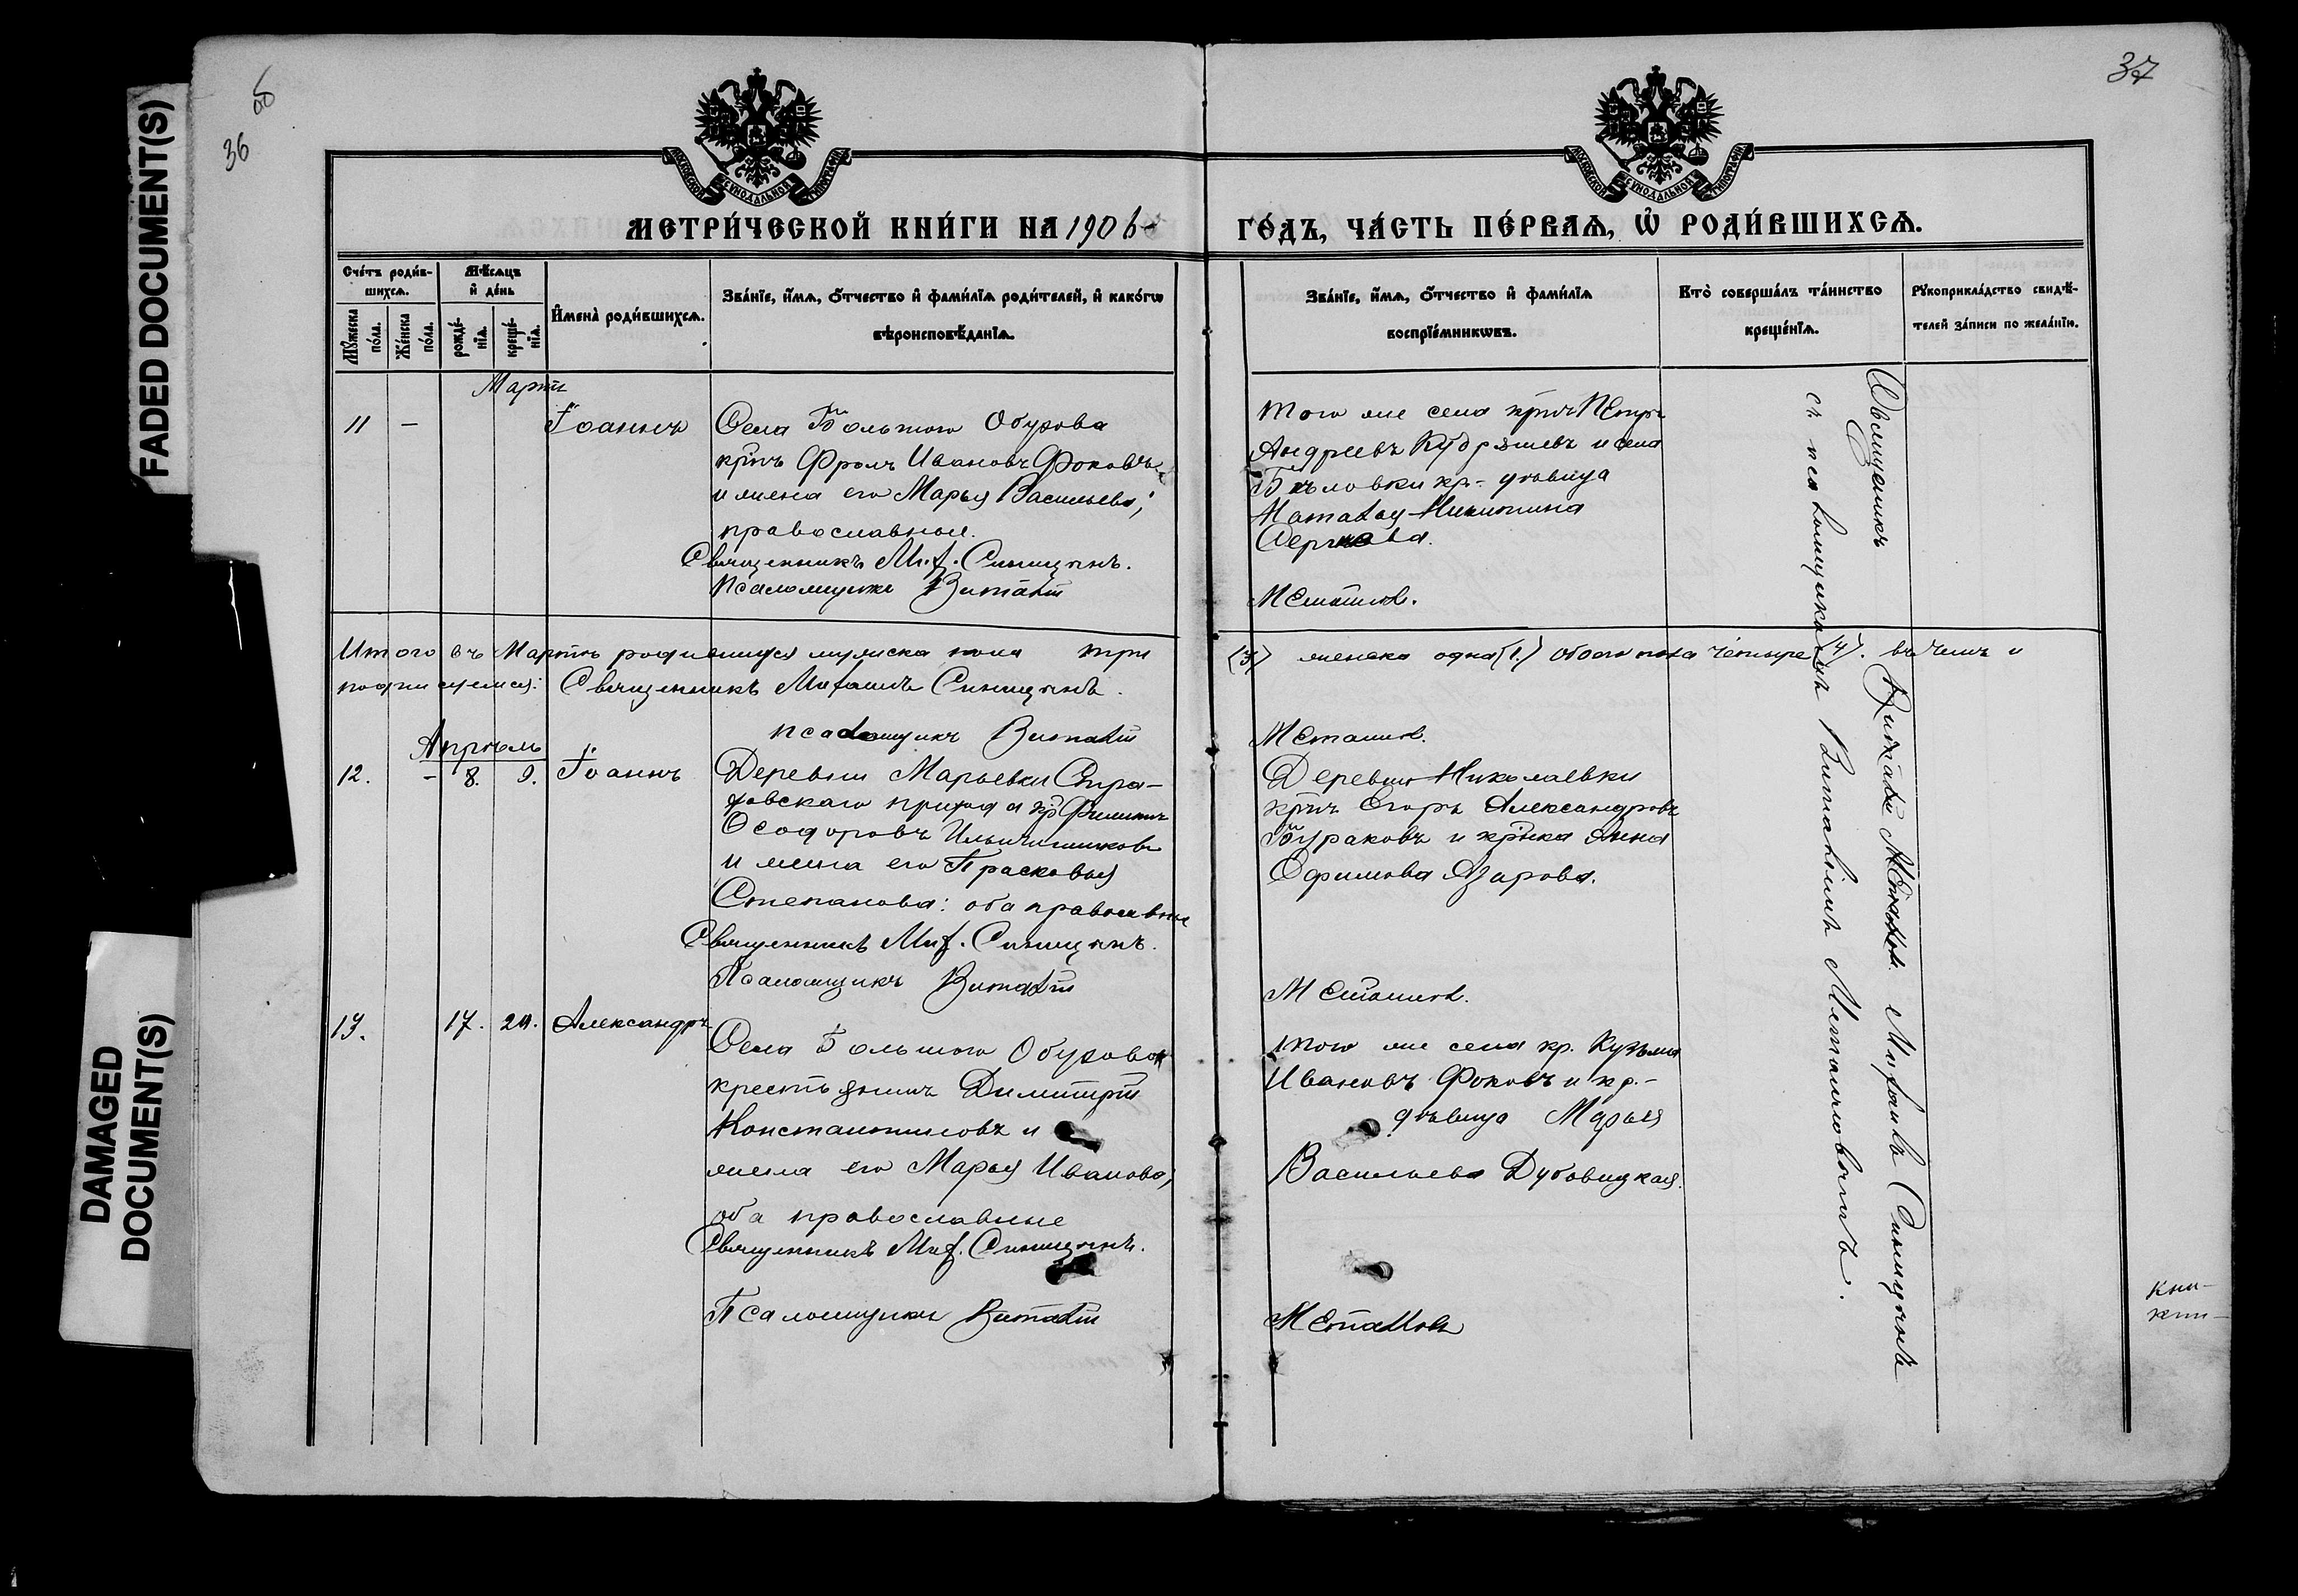 FADED DOCUMENT(S)
DAMAGED
DOCUMENT(S)
36
об
37
МОСКОВСКОЙ СѴНОДАЛЬНОЙ ТИПОГРАФІИ
МОСКОВСКОЙ СѴНОДАЛЬНОЙ ТИПОГРАФІИ
МЕТРИ́ЧЕСКОЙ КНИ́ГИ НА 1906
ГО́ДЪ, ЧА́СТЬ ПЕ́РВАѦ, Ѡ РОДИ́ВШИХСѦ.
Сче́тъ роди́в-
шихсѧ.
Мꙋ́жеска
по́ла.
Же́нска
по́ла.
Мѣ́сѧцъ
и҆ де́нь
рожде́-
нїѧ.
креще́-
нїѧ.
И҆мена̀ роди́вшихсѧ.
Зва́нїе, и҆́мѧ, ѻ҆́тчество и҆ фами́лїѧ роди́телей, и҆ како́гѡ
вѣроисповѣ́данїѧ.
Зва́нїе, и҆́мѧ, ѻ҆́тчество и҆ фами́лїѧ
воспрїе́мникѡвъ.
Кто̀ соверша́лъ та́инство
креще́нїѧ.
Рꙋкоприкла́дство свидѣ́-
телей за́писи по жела́нїю.
Мартъ
11 -
Іоаннъ
Села Большого Обухова
кр-нъ Фролъ Ивановъ Фоковъ
и жена его Марья Васильева;
православные.
Священникъ Мих. Синицынъ.
Псаломщикъ Виталій
того же села кр-нъ Петръ
Андреевъ Кудряшевъ и села
Бѣловки кр. дѣвица
Наталья Никитина
Металлов.
Итого въ Мартѣ родившихся мужска пола три
(3) женска одна (1) обоего пола четыре (4). въ чемъ и
подписуемся: Священникъ Михаилъ Синицынъ.
псаломщикъ Виталій
Металлов.
Апрѣль
12. - 8. 9. Іоаннъ
Деревни Марьевки
прихода кр. Филиппъ
Ѳеодоровъ
и жена его Прасковья
Степанова: оба православные
Священникъ Мих. Синицынъ.
Псаломщикъ Виталій
Деревни Николаевки
кр-нъ Егоръ Александровъ
Бураковъ и кр-нка Анна
Ефимова Азарова.
Металлов.
13. 17. 29. Александръ
Села Большого Обухова
крестьянинъ Димитрій
Константиновъ и
жена его Марья Иванова,
оба православные
Священникъ Мих. Синицынъ.
Псаломщикъ Виталій
того же села кр. Кузьма
Ивановъ Фоковъ и кр.-
дѣвица Марья
Васильева Дубовицкая.
Металловъ
Священникъ Михаилъ Синицынъ
съ псаломщикомъ Виталіемъ Металловымъ.